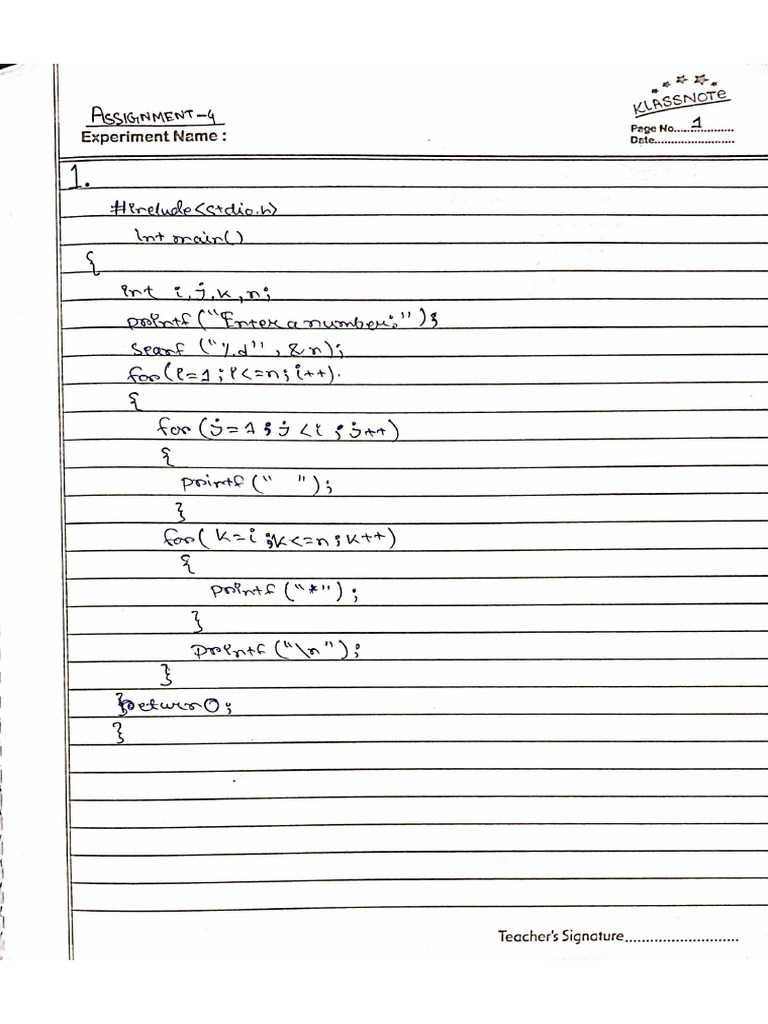 KLASSNOTE
ASSIGNMENT-4
Experiment Name :
Page No. 1
Date
1.
#include<stdio.h>
int main()
{
int i,j,k,n;
printf("Enter a number:");
scanf ("%d", &n);
for(i=1;i<=n;i++).
{
for(j=1;j<i;j++)
{
printf(" ");
}
for(k=i;k<=n;k++)
{
printf("*");
}
printf("\n");
}
}return 0;
}
Teacher's Signature